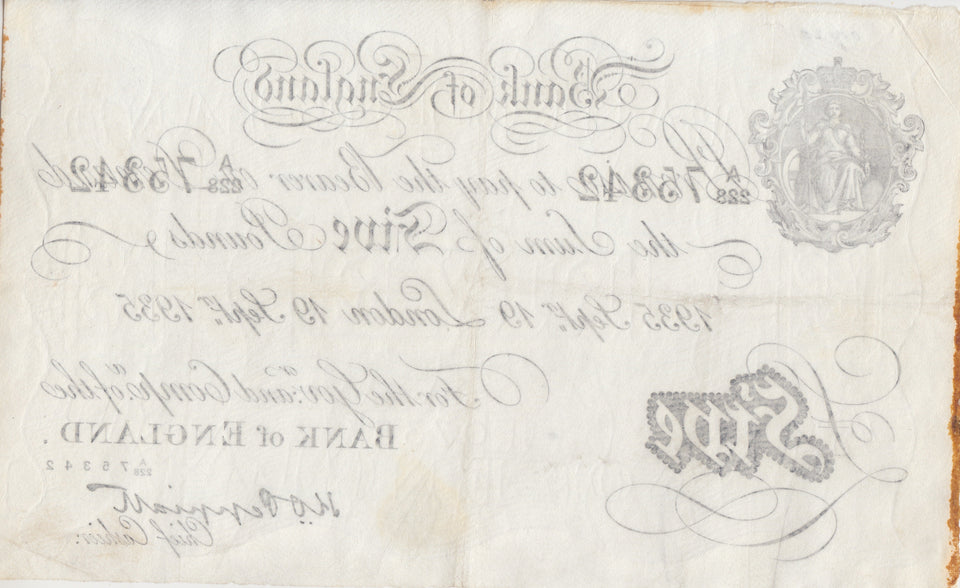 Bank of England
A/228 75342 to pay the Bearer A/228 75342
the Sum of Five Pounds
1935 Septr. 19 London 19 Septr. 1935
For the Govr. and Compa. of the
BANK of ENGLAND.
Five
A/228 75342
Chief Cashier.